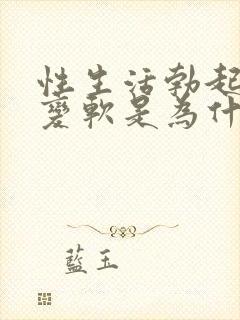 性生活勃起
變軟是為什
藍玉